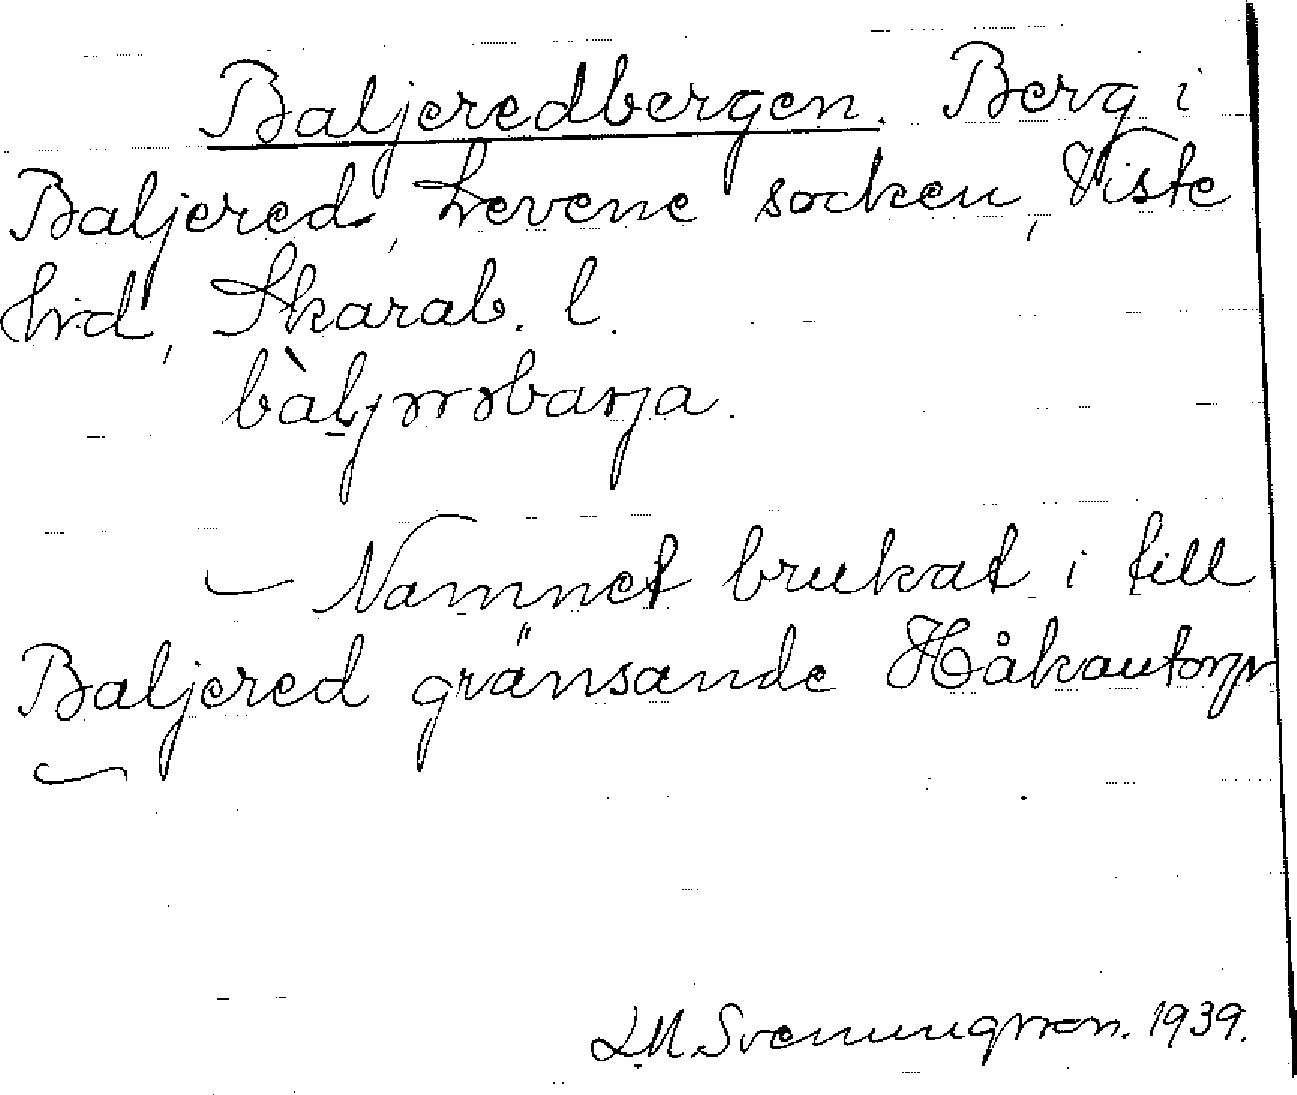 Baljeredbergen. Berg i
Baljered, Levene socken, Viste
hrd, Skarab. l.
— Namnet brukat i till
Baljered gränsande Håkantorp
—
L.M. Svenungsson. 1939.